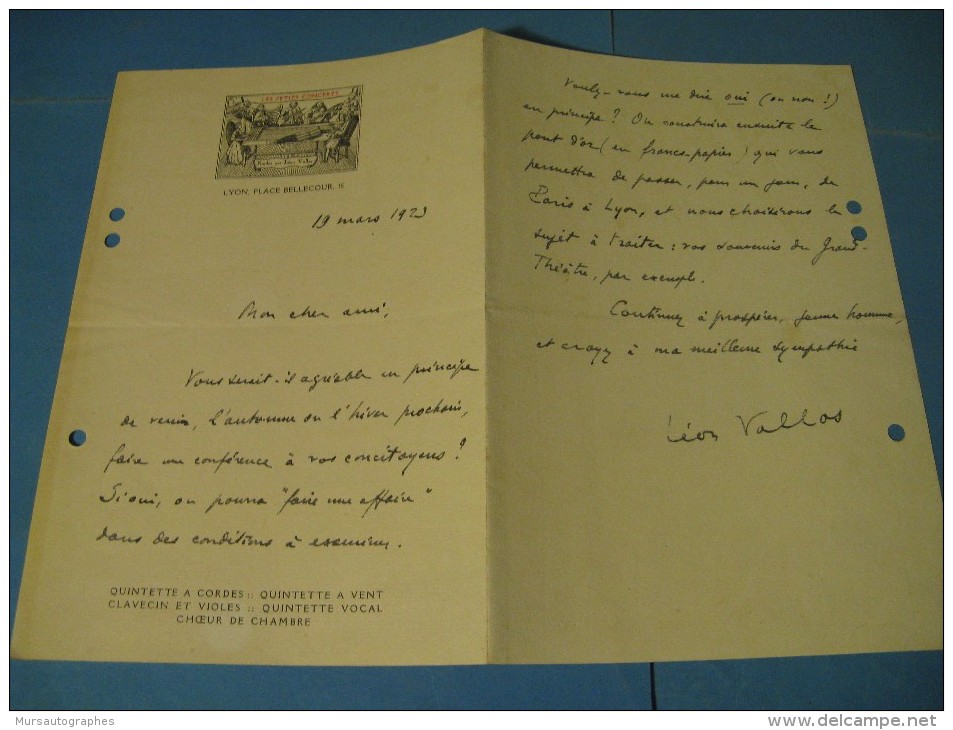 LES PETITS CONCERTS
LYON, PLACE BELLECOUR,
19 mars 1923
Mon cher ami,
Vous serait-il agréable en principe
de venir, l'automne ou l'hiver prochain,
faire une conférence à vos concitoyens?
Si oui, on pourra "faire une affaire"
dans des conditions à examiner.
QUINTETTE A CORDES :: QUINTETTE A VENT
CLAVECIN ET VIOLES :: QUINTETTE VOCAL
CHŒUR DE CHAMBRE
Voulez-vous me dire oui (ou non!)
en principe? On construira ensuite le
pont d'or (en francs-papier) qui vous
permettra de passer, pour un jour, de
Paris à Lyon, et nous choisirons le
sujet à traiter: vos souvenirs du Grand-
Théâtre, par exemple.
Continuez à prospérer, jeune homme,
et croyez à ma meilleure sympathie
Léon Vallas
Mursautographes
www.delcampe.net